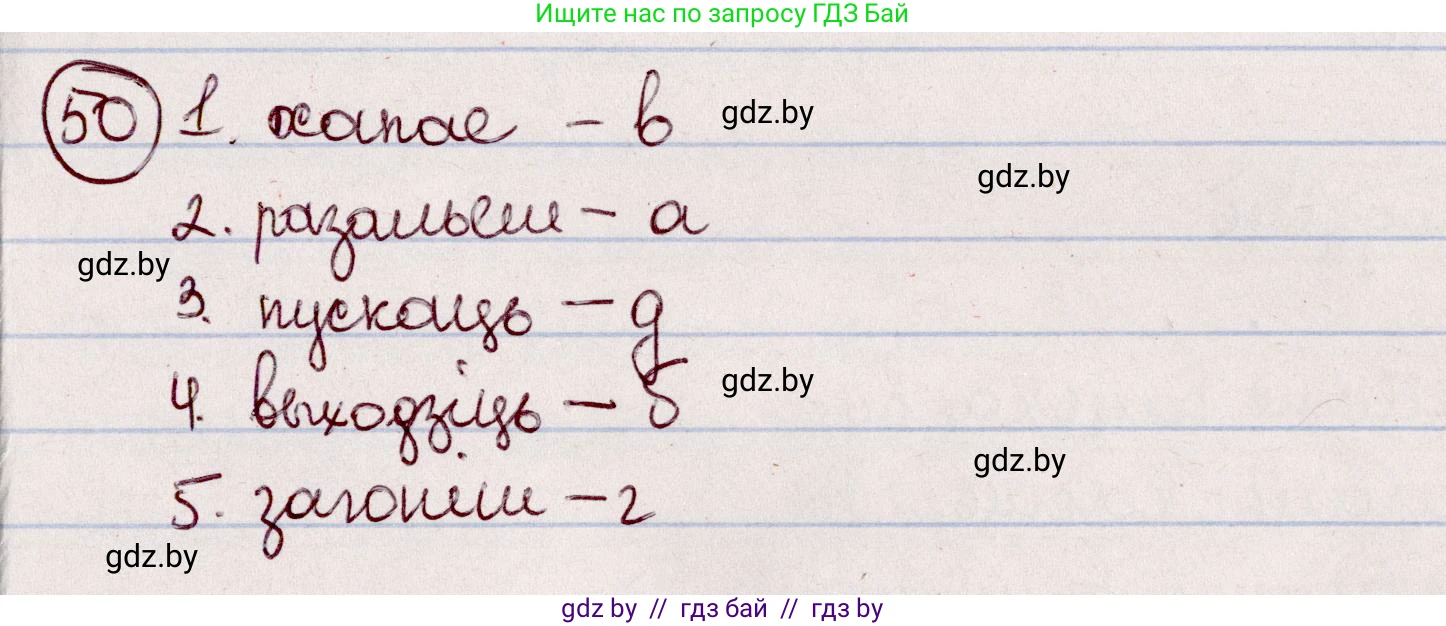 Ищите нас по запросу ГДЗ Бай
50 1. хапае – в
gdz.by
gdz.by
2. разальеш – а
gdz.by
3. пускаць – д
4. выходзіць – б
gdz.by
gdz.by
5. загоніш – г
gdz.by
gdz by // гдз бай // гдз by